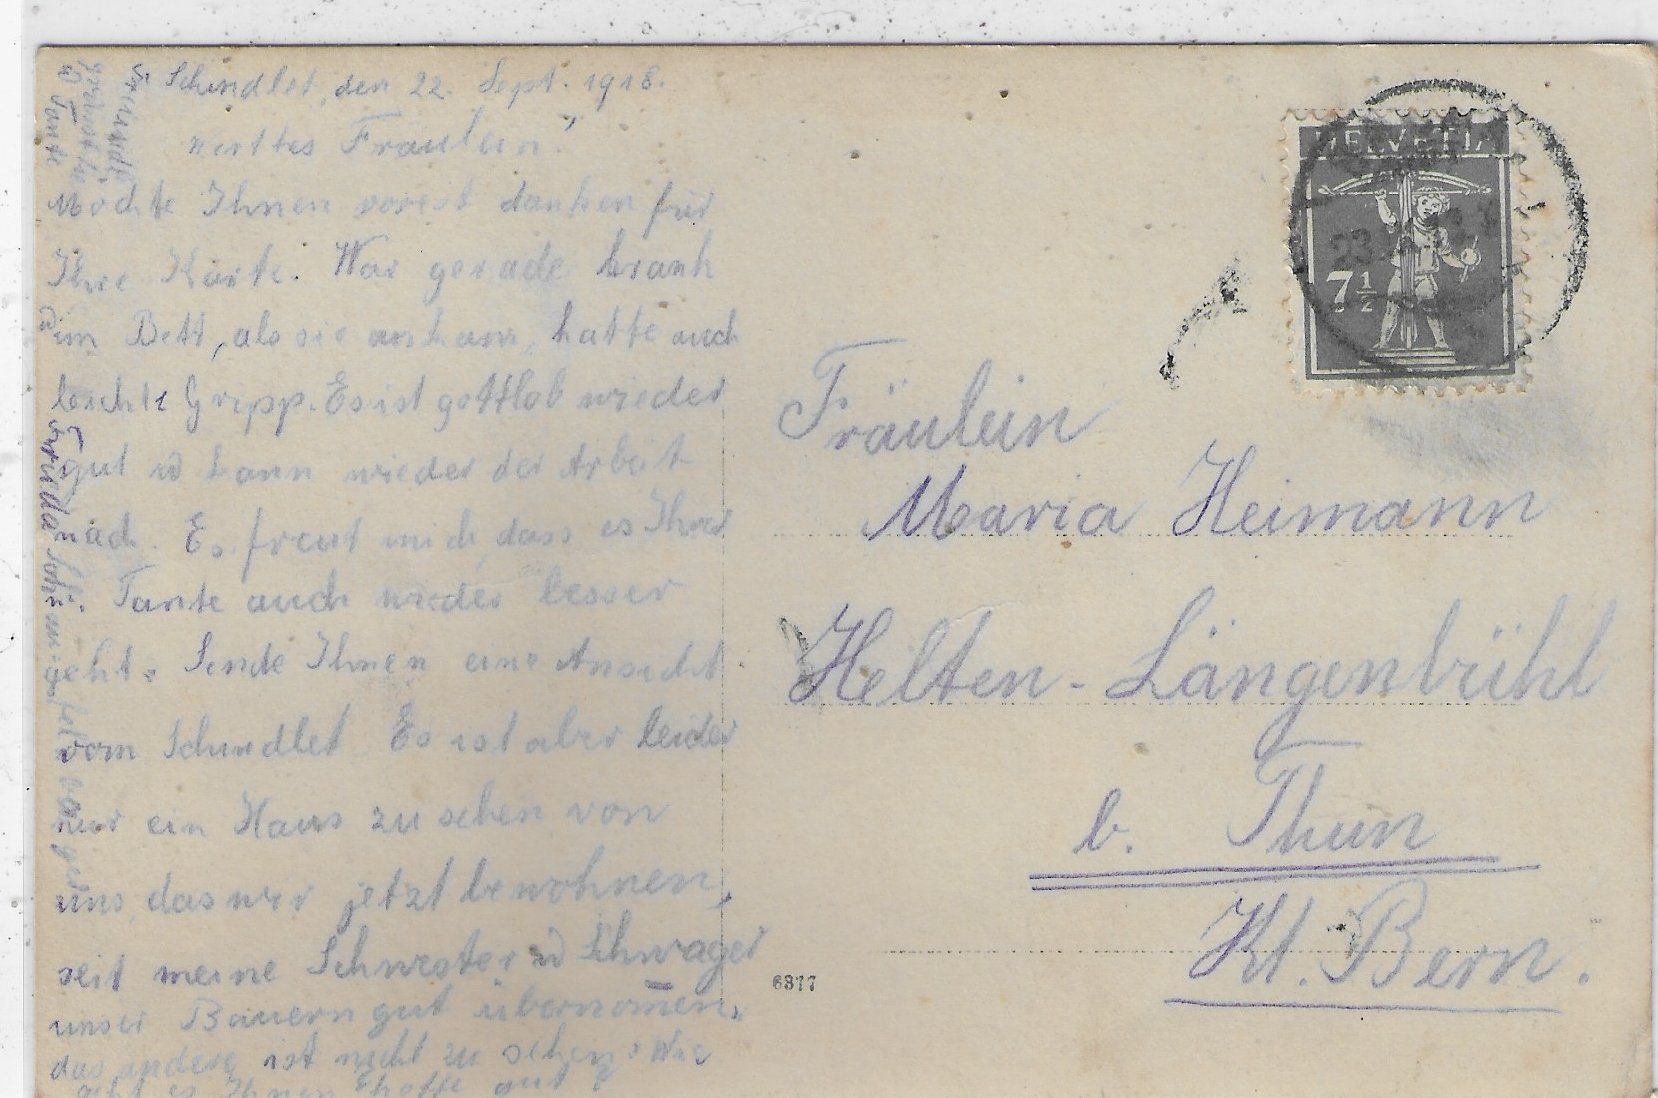 Schindlet, den 22. Sept. 1918.
Werttes Fräulein!
Möchte Ihnen vorerst danken für
Ihre Karte. War gerade krank
im Bett, als sie ankam, hatte auch
leichte Gripp. Es ist gottlob wieder
gut u kann wieder der Arbeit
nach. Es freut mich, dass es Ihrer
Tante auch wieder besser
geht. Sende Ihnen eine Ansicht
vom Schindlet. Es ist aber leider
nur ein Haus zu sehen von
uns, das wir jetzt bewohnen,
seit meine Schwester u Schwager
unser Bauerngut übernom̄en,
das andere ist nicht zu sehen. Wie
geht es Ihnen? hoffe gut
u Tante
Frieda
HELVETIA
7 1/2
23
Fräulein
Maria Heimann
Helten-Längenbühl
b. Thun
Kt. Bern.
6377